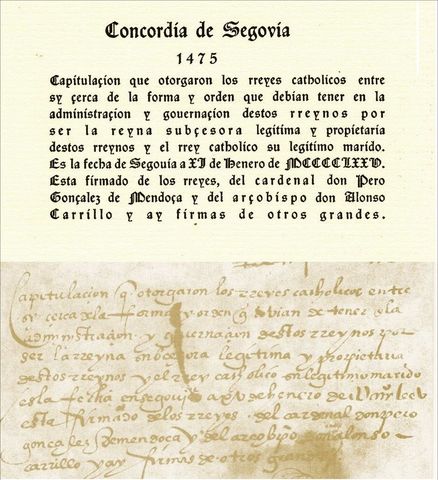 Concordia de Segovia
1475
Capitulaçion que otorgaron los rreyes catholicos entre
sy çerca de la forma y orden que debian tener en la
administraçion y gouernaçion destos rreynos por
ser la reyna subçesora legitima y propietaria
destos rreynos y el rrey catholico su legitimo marido.
Es la fecha de Segouia a XV de Henero de MCCCCLXXV.
Esta firmado de los rreyes, del cardenal don Pero
Gonçalez de Mendoça y del arçobispo don Alonso
Carrillo y ay firmas de otros grandes.
Capitulaçion q otorgaron los rreyes catholicos entre
sy çerca de la forma y orden q debian de tener en la
administraçion y gouernaçion destos rreynos por
ser la rreyna subçesora legitima y propietaria
destos rreynos y el rrey catholico su legitimo marido
es la fecha en segouia a de henero de
esta firmado de los rreyes del cardenal don pero
gonçalez de mendoça y del arçobispo don alonso
carrillo y ay firmas de otros grandes